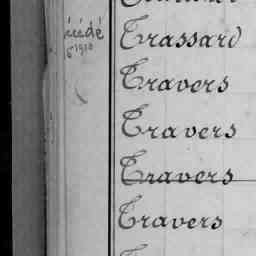 décédé
1910
Trassard
Travers
Travers
Travers
Travers